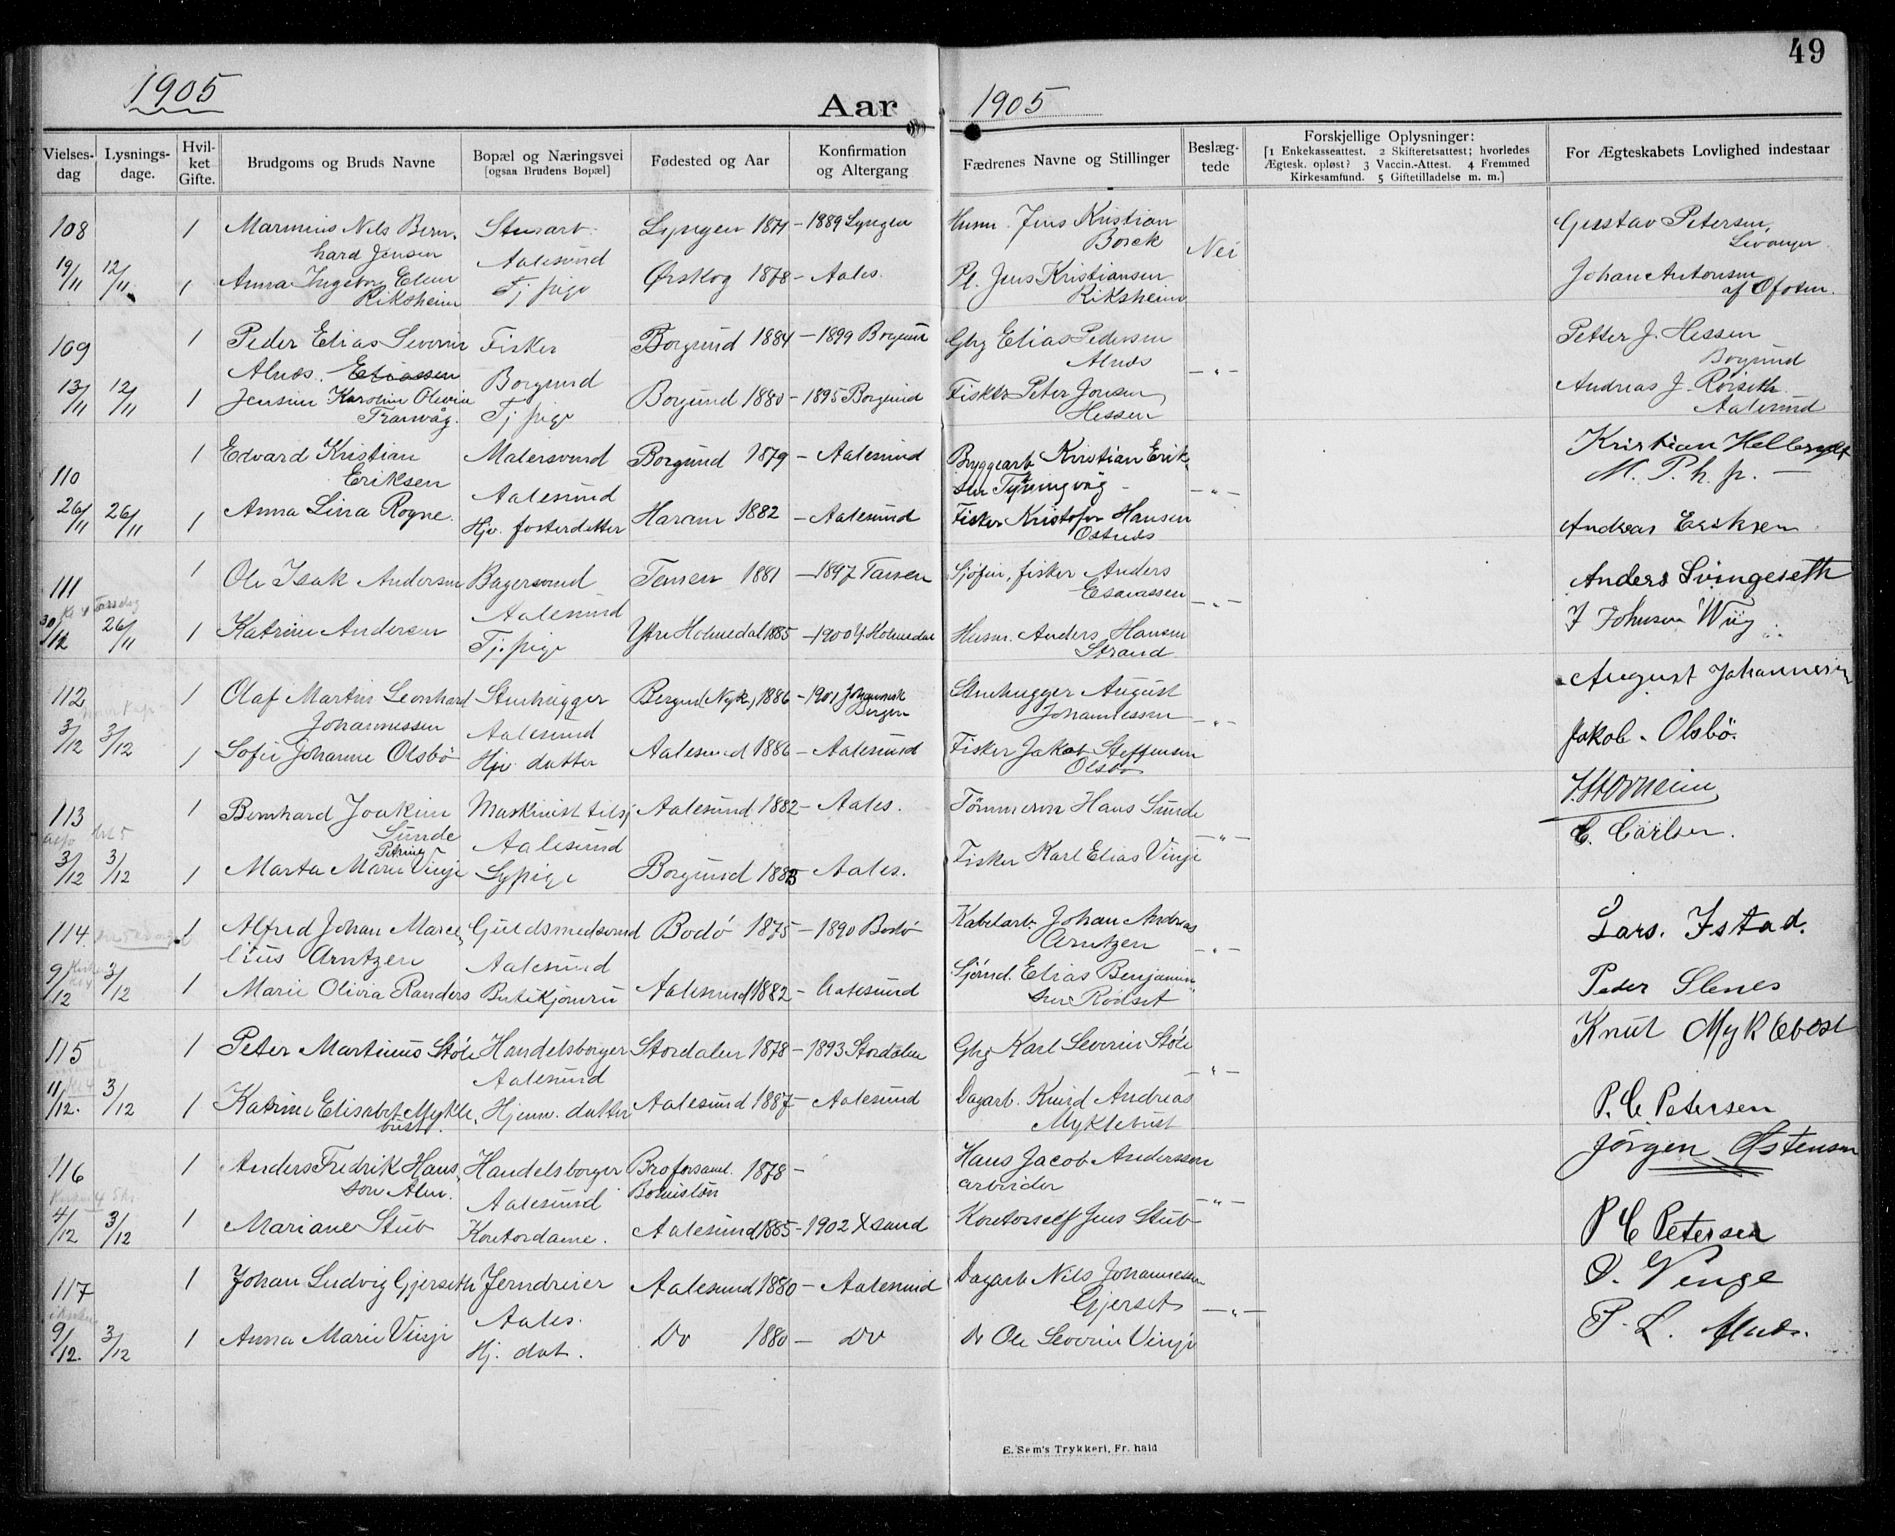 49
1905
Aar
1905
Vielses-dag
Lysnings-dage.
Hvil-ket Gifte.
Brudgoms og Bruds Navne
Bopæl og Næringsvei [ogsaa Brudens Bopæl]
Fødested og Aar
Konfirmation og Altergang
Fædrenes Navne og Stillinger
Beslæg-tede
Forskjellige Oplysninger:
[1 Enkekasseattest. 2 Skifteretsattest; hvorledes
Ægtesk. opløst? 3 Vaccin.-Attest. 4 Fremmed
Kirkesamfund. 5 Giftetilladelse m. m.]
For Ægteskabets Lovlighed indestaar
108 1 Marinius Nils Bern- Lyngen 1871 - 1889 Lyngen Husm. Jens Kristian Gustav Petersen,
hard Jensen Aalesund Borck Nei Levanger
19/11 12/11 1 Anna Ingeborg Elen Tj. pige Ørskog 1878 - Aales. Pl. Jens Kristiansen Johan Antonsen
Riksheim Riksheim af Ofoten.
109 1 Peder Elias Severin Fisker Borgund 1884 - 1899 Borgund Gbg Elias Pedersen Petter J. Hessen
Alnes. Eliassen Borgund Alnes -"- Borgund
13/11 12/11 1 Jensine Karolin Olivia Tj. pige Borgund 1880 - 1895 Borgund Fisker Peter Jonsen Andreas J. Røiseth
Tranvåg. Hessen Aalesund
110 1 Edvard Kristian Malersvend Borgund 1879 - Aalesund Bryggearb Kristian Erik-
Eriksen Aalesund sen -"- M. P. h. p. -
26/11 26/11 1 Anna Lina Rogne. Hjv. fosterdatter Haram 1882 - Aalesund Fisker Kristofer Hansen Andreas Eriksen
Ostnes
111 1 Ole Isak Andersen Bagersvend 1881 - 1897 Sjøfin, fisker Anders Anders Svingeseth
Aalesund Esaiassen -"-
30/12 Kl 4 Torsdag 26/11 1 Katrine Andersen Tj. pige Ytre Holmedal 1885 - 1900 Y Holmedal Husm. Anders Hansen J Johnsen Wiig
Strand
112 1 Olaf Martin Leonhard Stenhugger Bergen (Nyk.) 1886 - 1901 Johannesk Bergen Stenhugger August August Johannesen
Johannessen Aalesund Johannessen -"-
3/12 3/12 1 Sofie Johanne Olsbø Hjv. datter Aalesund 1886 - Aalesund Fisker Jakob Steffensen Jakob. Olsbø.
Olsbø
113 1 Bernhard Joakim Maskinist tilsj Aalesund 1882 - Aales. Tømmerm Hans Sunde
Sunde Aalesund -"- C. Carlsen.
Petrine
3/12 3/12 1 Marta Marie Vinje Sypige Borgund 1883 - Aales. Fisker Karl Elias Vinje
114. 1 Alfred Johan Marce- Guldsmedsvend Bodø 1875 - 1890 Bodø Kabelarb. Johan Andreas Lars. Istad.
lius Arntzen Aalesund Arntzen -"-
9/12 3/12 1 Marie Olivia Randers Butikjomfru Aalesund 1882 - Aalesund Sjømd. Elias Benjamin- Peder Slenes
sen Rødset
115 1 Peter Martinus Støle Handelsborger Stordalen 1878 - 1893 Stordalen Gbg Karl Severin Støle Knut Myklebost
Aalesund -"-
11/12. 3/12 1 Katrine Elisabet Mykle- Hjemv. datter Aalesund 1887 - Aalesund Dagarb. Knud Andreas P. C Petersen
bust. Myklebust
116 1 Anders Fredrik Hans- Handelsborger 1878 - Hans Jacob Anderssen Jørgen Østensen
son Alm. Aalesund arbeider -"-
4/12 3/12 1 Mariane Stub Kontordame. Aalesund 1885 - 1902 X sund Jens Stub P C Petersen
117 1 Johan Ludvig Gjerseth Jerndreier Aalesund 1880 - Aalesund Dagarb Nils Johannesen O. Vinge
Aales. Gjerset -"-
9/12. 3/12 1 Anna Marie Vinje Hj. dat. Do 1880 - Do Do Ole Severin Vinje P. L. Alnes.
E. Sem's Trykkeri, Fr. hald